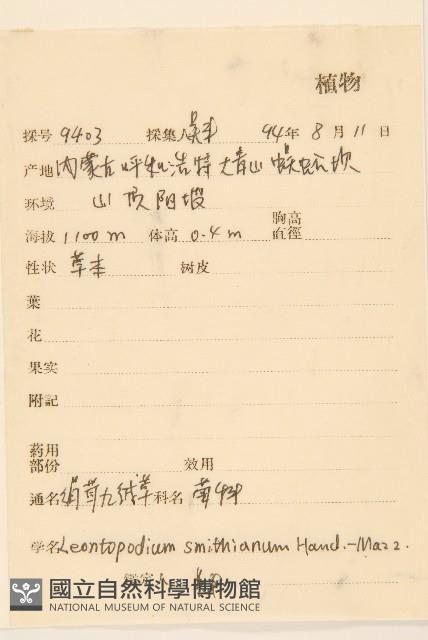 植物
採号 9403 採集人 94年 8月 11日
产地 内蒙古呼和浩特大青山蜈蚣坝
环境 山顶阳坡
海拔 1100m 体高 0.4m 胸高直徑
性状 草本 树皮
葉
花
果实
附記
药用部份 效用
通名 绢茸火绒草 科名 菊科
学名 Leontopodium smithianum Hand.-Mazz.
鑑定人
國立自然科學博物館
NATIONAL MUSEUM OF NATURAL SCIENCE